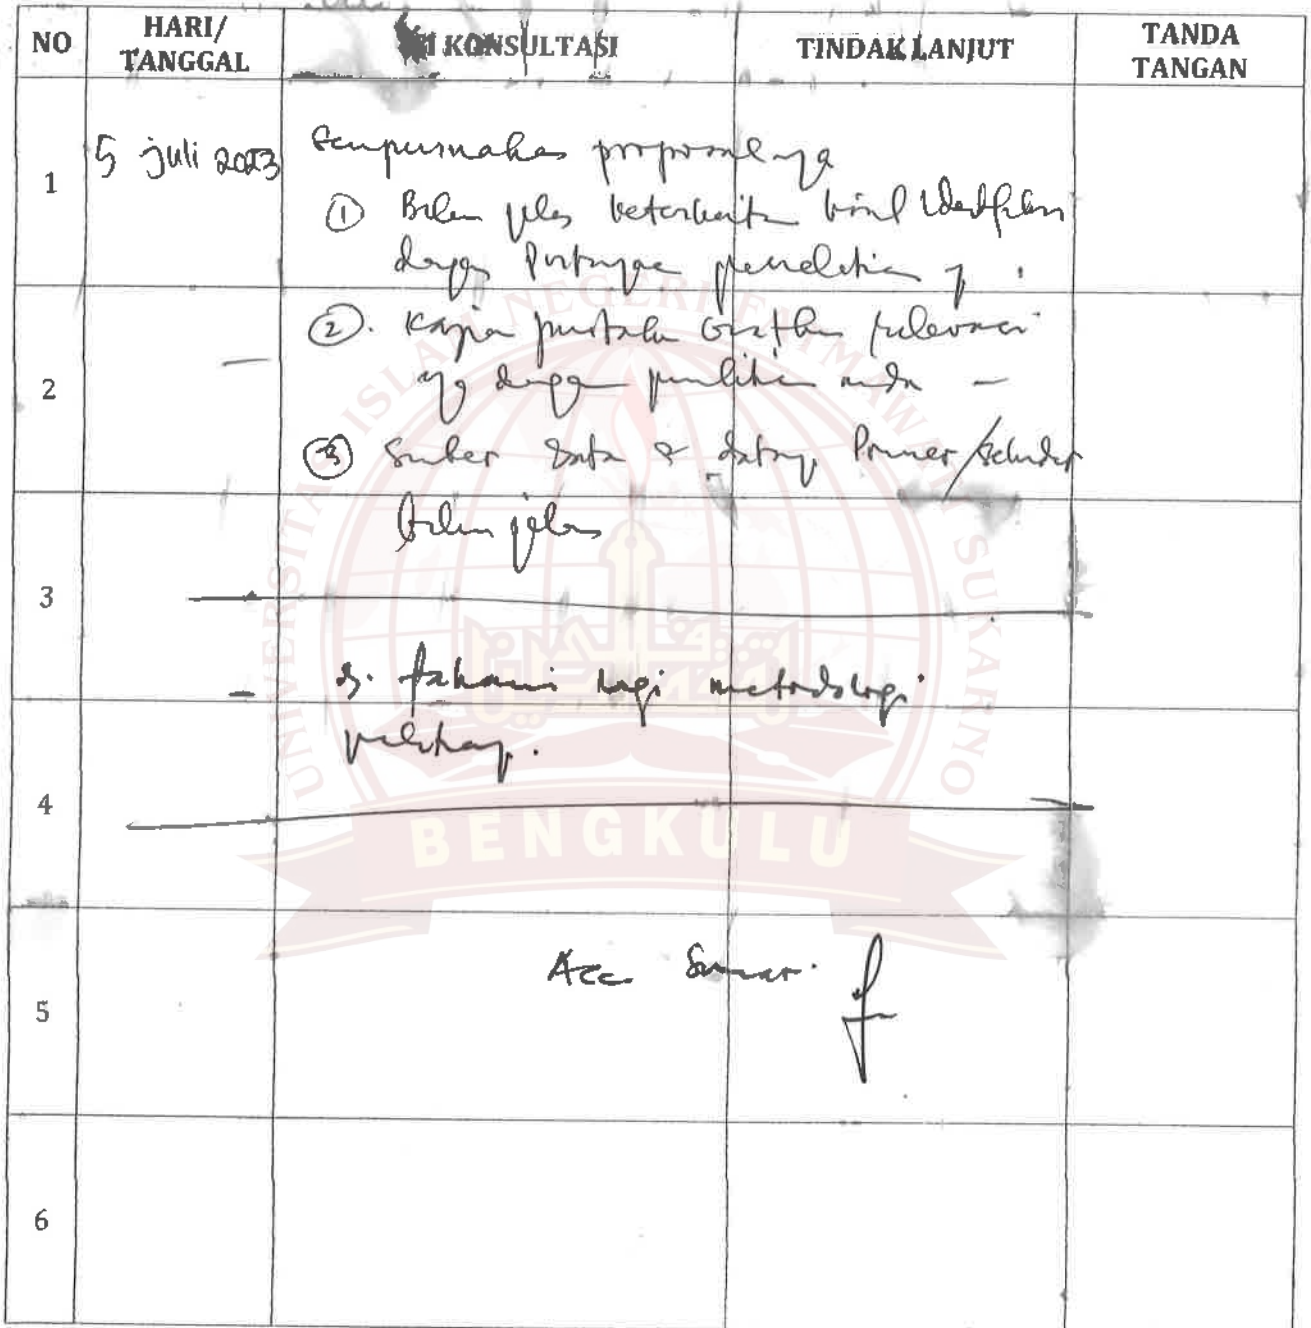 NO HARI/ TANGGAL KONSULTASI TINDAK LANJUT TANDA TANGAN
1 5 Juli 2023 Sempurnakan proposalnya
① Belum jelas keterkaitan
dengan penelitian
② Kajian pustaka relevansi
yg dengan penelitian anda
2
③ Sumber data & datanya Primer/Sekunder
belum jelas
3
Pahami lagi metodologi
4
Acc Seminar
5
6
UNIVERSITAS ISLAM NEGERI FATMAWATI SUKARNO
BENGKULU